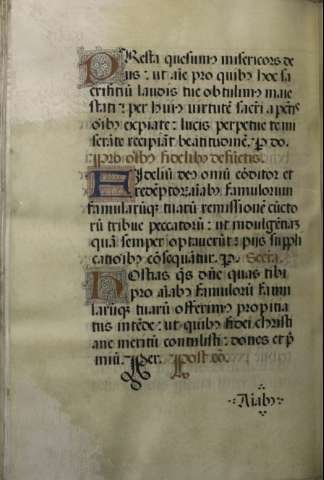 PResta quesum9 misericors de
us: ut aīe pro quib9 hoc sa
crifitiū laudis tue obtulim9 maie
stati: per hui9 virtutē sacrī a pctīs
oīb9 expiate: lucis perpetue te mi
serāte recipiāt beatitudinē. P do.
Pro oīb9 fidelib9 defūctis.
FIdeliū des oniū cōditor et
redēptor: aīab9 famulorum
famularūq tuarū remissionē cūcto
rū tribue peccatorū: ut indulgētiaz
quā semper optauerūt: pijs suppli
catioīb9 cōsequātur. qP. Secrā.
HOstias qs dne quas tibi
pro aīab9 famulorū famu
larūq tuarū offerim9 propitia
tus intēde: ut quib9 fidei christi
ane meritū contulisti: dones et p̄
miū. Per. Post cō.
Aīab9